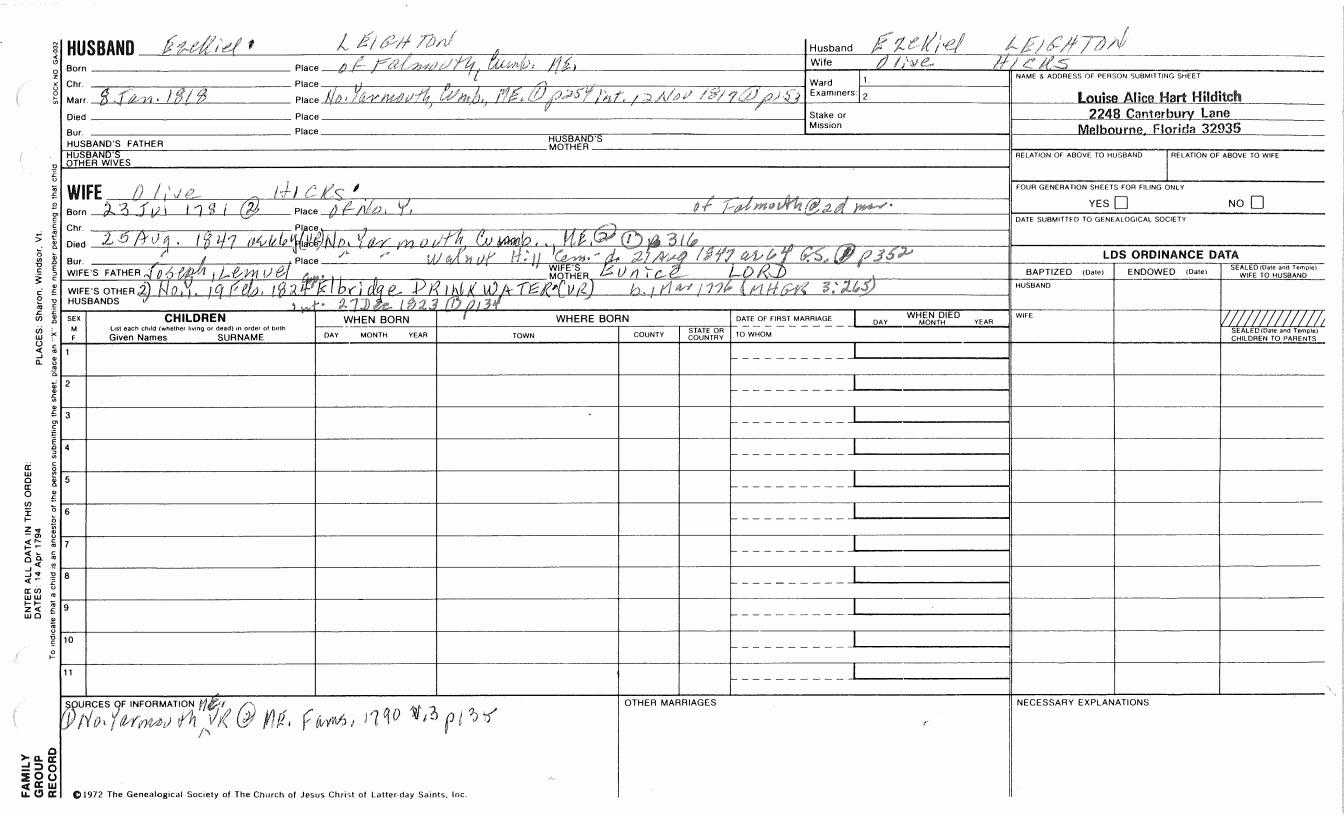 HUSBAND Ezekiel LEIGHTON
Born Place of Falmouth, Cumb. ME.
Chr. Place
Marr. 8 Jan. 1818 Place No. Yarmouth, Cumb., ME. ① p254 int. 12 Nov 1817 ① p153
Died Place
Bur. Place
HUSBAND'S FATHER HUSBAND'S MOTHER
HUSBAND'S OTHER WIVES
Husband Ezekiel LEIGHTON
Wife Olive HICKS
Ward Examiners: 1 2
Stake or Mission
NAME & ADDRESS OF PERSON SUBMITTING SHEET
Louise Alice Hart Hilditch
2248 Canterbury Lane
Melbourne, Florida 32935
RELATION OF ABOVE TO HUSBAND RELATION OF ABOVE TO WIFE
FOUR GENERATION SHEETS FOR FILING ONLY
YES NO
DATE SUBMITTED TO GENEALOGICAL SOCIETY
WIFE Olive HICKS
Born 23 Jul 1781 ② Place of No. Y. of Falmouth @ 2d mar.
Chr. Place
Died 25 Aug. 1847 ae 66y Place No. Yarmouth, Cumb., ME. ② ① p 316
Bur. Place " " Walnut Hill Cem. d. 27 Aug 1847 ae 64 G.S. ① p352
WIFE'S FATHER Joseph, Lemuel WIFE'S MOTHER Eunice LORD
WIFE'S OTHER HUSBANDS 2) No. Y. 19 Feb. 1824 Elbridge DRINKWATER (VR) b. 1 Mar 1776 (MHGR 3:265)
int. 27 Dec 1823 ① p134
LDS ORDINANCE DATA
BAPTIZED (Date) ENDOWED (Date) SEALED (Date and Temple) WIFE TO HUSBAND
HUSBAND
WIFE
SEALED (Date and Temple) CHILDREN TO PARENTS
SEX M F
CHILDREN
List each child (whether living or dead) in order of birth
Given Names SURNAME
WHEN BORN
DAY MONTH YEAR
WHERE BORN
TOWN COUNTY STATE OR COUNTRY
DATE OF FIRST MARRIAGE
TO WHOM
WHEN DIED
DAY MONTH YEAR
1
2
3
4
5
6
7
8
9
10
11
SOURCES OF INFORMATION
① No. Yarmouth ME. VR ② ME. Fams, 1790 v.3 p135
OTHER MARRIAGES
NECESSARY EXPLANATIONS
©1972 The Genealogical Society of The Church of Jesus Christ of Latter-day Saints, Inc.
STOCK NO. GA-002
ENTER ALL DATA IN THIS ORDER:
DATES: 14 Apr 1794
PLACES: Sharon, Windsor, Vt.
To indicate that a child is an ancestor of the person submitting the sheet, place an "X" behind the number pertaining to that child
FAMILY
GROUP
RECORD